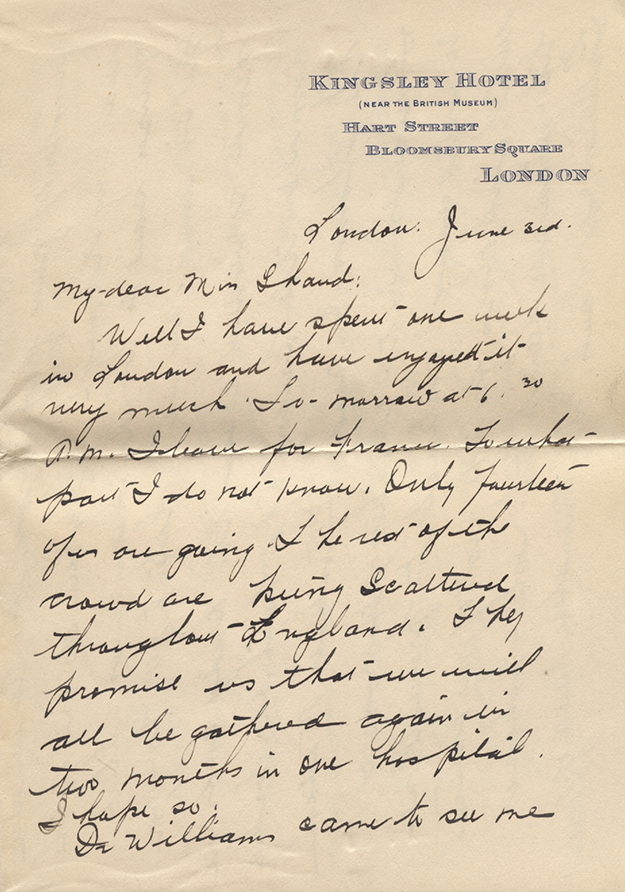 KINGSLEY HOTEL
(NEAR THE BRITISH MUSEUM)
HART STREET
BLOOMSBURY SQUARE
LONDON
London. June 3rd.
My dear Miss Shand:
Well I have spent one week
in London and have enjoyed it
very much. To-morrow at 6.30
P.M. I leave for France. To what
part I do not know. Only fourteen
of us are going. The rest of the
crowd are being scattered
throughout England. They
promise us that we will
all be gathered again in
two months in one hospital.
I hope so.
Dr Williams came to see me